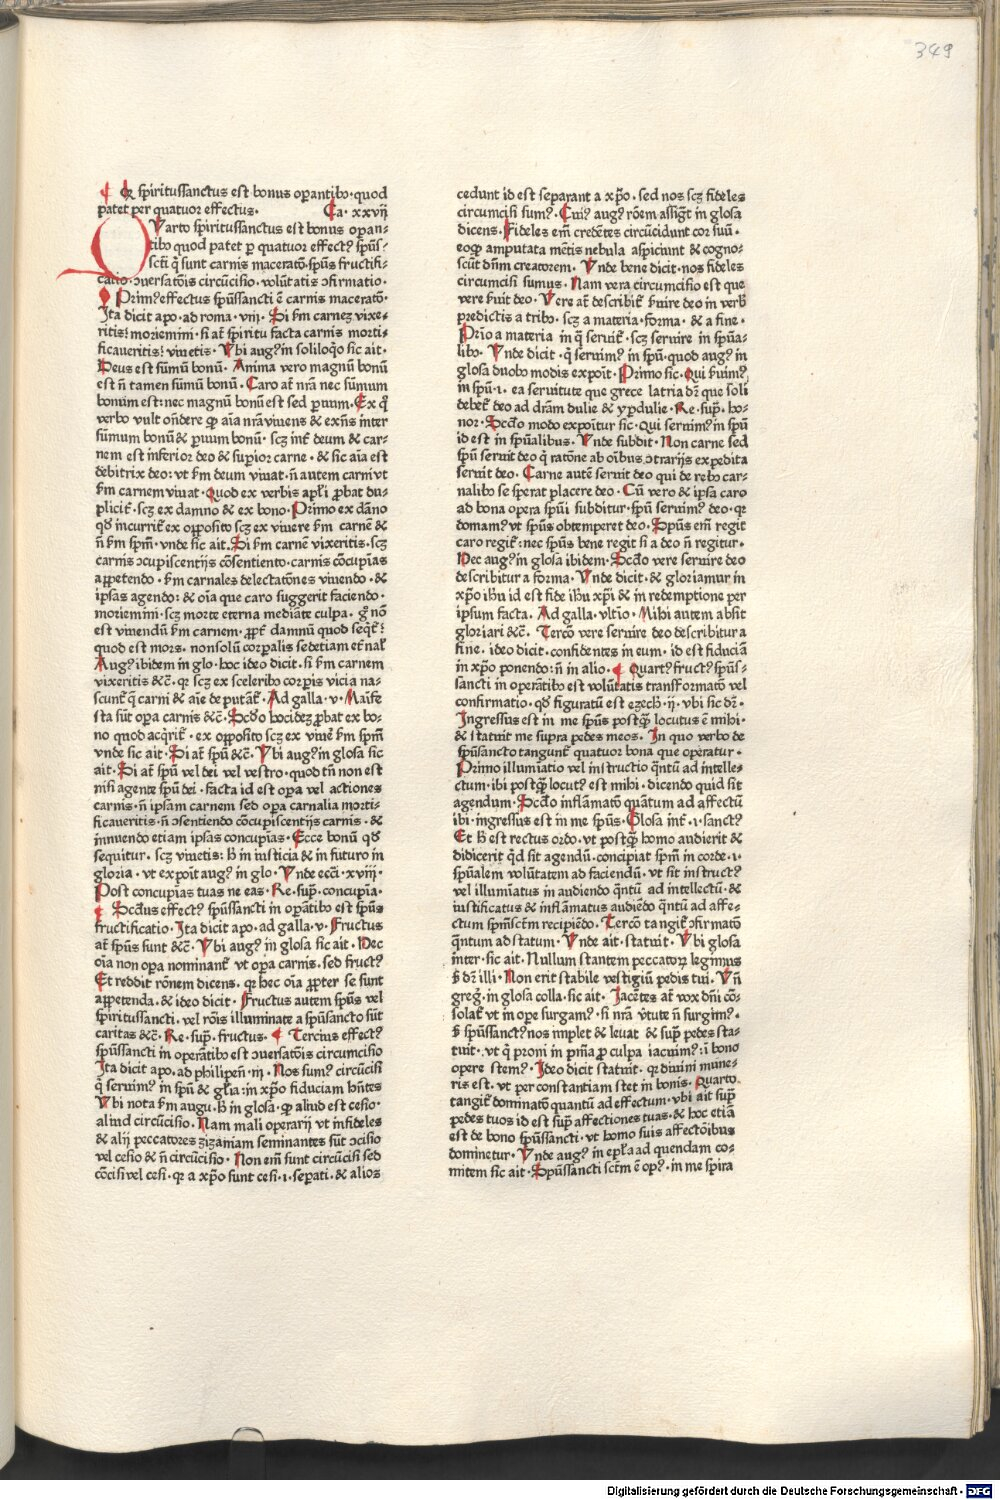 349
¶ Qꝛ spiritussanctus est bonus oꝑantibꝰ·quod
patet per quatuor effectus· Ca· xxvij
QVarto spiritussanctus est bonus oꝑan-
tibꝰ quod patet ꝑ quatuor effectꝰ spūs
scti q̄ sunt carnis maceratō·spūs fructifi-
catio·ↄuersatōis circūcisio·volūtatis ↄfirmatio·
Primꝰ effectus spūssancti ē carnis maceratō·
Ita dicit apo·ad roma·viij· Si ẜm carnez vixe-
ritis: moriemini·si aūt spiritu facta carnis morti-
ficaueritis: viuetis· Vbi augꝰ in soliloqꝰ sic ait·
Deus est sūmū bonū· Anima vero magnū bonū
est nō tamen sūmū bonū· Caro aūt nr̄a nec sūmum
bonum est: nec magnū bonū est sed ꝑuum· Ex qͦ
verbo vult on̄dere ꝙ aīa nr̄a viuens & exn̄s inter
sūmum bonū & ꝑuum bonū· scz int̄ deum & car-
nem est inferior deo & suꝑior carne·& sic aīa est
debitrix deo: vt ẜm deum viuat·n̄ autem carni vt
ẜm carnem viuat· Quod ex verbis apl̄i ꝓbat du-
plicit̄·scz ex damno & ex bono· Primo ex dāno
qd̄ incurrit̄ ex opposito scz ex viuere ẜm carnē &
n̄ ẜm spm̄· vnde sic ait· Si ẜm carnē vixeritis·scz
carnis ↄcupiscentijs cōsentiento·carnis cōcupīas
appetendo·ẜm carnales delectatōnes viuendo·&
ipsas agendo: & oīa que caro suggerit faciendo·
moriemini·scz morte eterna mediāte culpa· gͦ nō
est viuendū ẜm carnem·ꝓpt̄ damnū quod seqt̄
quod est mors·nonsolū corꝑalis sed etiam et̄nal̄
Augꝰ ibidem in glo·hoc ideo dicit·si ẜm carnem
vixeritis &c̄·qꝛ scz ex sceleribꝰ corꝑis vicia na-
scunt̄ q̄ carni & aīe deputāt̄· Ad galla·v· Māife
sta sūt oꝑa carnis &c̄· Scd̄o hoc idez ꝓbat ex bo-
no quod acqrit̄·ex opposito scz ex viuē ẜm spm̄
vnde sic ait· Si aūt spū &c̄· Vbi augꝰ in glosa sic
ait· Si aūt spū vel dei vel vestro·quod tn̄ non est
nisi agente spū dei·facta id est oꝑa vel actiones
carnis·n̄ ipsam carnem sed oꝑa carnalia morti-
ficaueritis·n̄ ↄsentiendo cōcupiscentijs carnis·&
innuendo etiam ipsas concupīas· Ecce bonū qd̄
sequitur·scz viuetis: h̄ in iusticia & in futuro in
gloria·vt expoīt augꝰ in glo· Vnde ecci·xviij·
Post concupīas tuas ne eas· Re·suꝑ·concupīa·
¶ Scd̄us effectꝰ spūssancti in oꝑātibꝰ est spūs
fructificatio· Ita dicit apo·ad galla·v· Fructus
aūt spūs sunt &c̄· Vbi augꝰ in glosa sic ait· Nec
oīa non oꝑa nominant̄ vt oꝑa carnis·sed fructꝰ
Et reddit rōnem dicens·qꝛ hec oīa ꝓpter se sunt
appetenda·& ideo dicit· Fructus autem spūs vel
spiritussancti·vel rōis illuminate a spūsancto sūt
caritas &c̄· Re·suꝑ·fructus· ¶ Tercius effectꝰ
spūssancti in oꝑātibꝰ est ↄuersatōis circumcisio
Ita dicit apo·ad philipeñ·iij· Nos sumꝰ circūcisi
q̄ seruimꝰ in spū & gl̄ia: in xp̄o fiduciam hn̄tes
Vbi nota ẜm augu·h̄ in glosa·ꝙ aliud est cesio·
aliud circūcisio· Nam mali operarij vt infideles
& alij peccatores zizaniam seminantes sūt ↄcisio
vel cesio & n̄ circūcisio· Non em̄ sunt circūcisi sed
cōcisi vel cesi·qꝛ a xp̄o sunt cesi·i·seꝑati·& alios
cedunt id est separant a xp̄o·sed nos scz fideles
circumcisi sumꝰ· Cuiꝰ augꝰ rōem assigt̄ in glosa
dicens· Fideles em̄ credētes circūcidunt cor suū·
eoqꝫ amputata mētis nebula aspiciunt & cogno-
scūt dn̄m creatorem· Vnde bene dicit·nos fideles
circumcisi sumus· Nam vera circumcisio est que
vere ẜuit deo· Vere aūt describit̄ ẜuire deo in verb̄
predictis a tribꝰ·scz a materia·forma·& a fine·
Primo a materia in q̄ seruit̄·scz seruire in spūa-
libꝰ· Vnde dicit·q̄ seruimꝰ in spū·quod augꝰ in
glosa duobꝰ modis expoīt· Primo sic· Qui ẜuimꝰ
in spū·i·ea seruitute que grece latria dr̄ que soli
debet̄ deo ad dr̄am dulie & yꝑdulie· Re·suꝑ·ho-
nor· Scd̄o modo expoītur sic· Qui seruimꝰ in spū
id est in spūalibus· Vnde subdit· Non carne sed
spū seruit deo q̄ ratōne ab oībus ↄtrarijs expedita
seruit deo· Carne autē seruit deo qui de rebꝰ car-
nalibꝰ se sperat placere deo· Cū vero & ipsa caro
ad bona oꝑa spūi subditur·spū seruimꝰ deo·qꝛ
domamꝰ vt spūs obtemperet deo· Spūs em̄ regit
caro regit̄: nec spūs bene regit si a deo n̄ regitur·
Nec augꝰ in glosa ibidem· Scd̄o vere seruire deo
describitur a forma· Vnde dicit·& gloriamur in
xp̄o ihū id est fide ihū xp̄i & in redemptione per
ipsum facta· Ad galla·vltīo· Mihi autem absit
gloriari &c̄· Tercō vere seruire deo describitur a
fine·ideo dicit·confidentes in eum·id est fiduciā
in xp̄o ponendo: n̄ in alio· ¶ Quartꝰ fructꝰ spūs-
sancti in operātibꝰ est volūtatis transformatō vel
confirmatio·qd̄ figuratū est ezech·ij·vbi sic dr̄·
Ingressus est in me spūs postq̄ꝫ locutus ē mihi·
& statuit me supra pedes meos· In quo verbo de
spūsancto tangunt̄ quatuor bona que operatur·
Primo illumīatio vel instructio q̄ntū ad intelle-
ctum·ibi postq̄ꝫ locutꝰ est mihi·dicendo quid sit
agendum· Scd̄o inflāmatō quātum ad affectū
ibi·ingressus est in me spūs· Glosa int̄·i·sanctꝰ
Et h̄ est rectus ordo·vt postq̄ꝫ homo audierit &
didicerit qd̄ sit agendū·concipiat spm̄ in corde·i·
spūalem volūtatem ad faciendū·vt sit instructꝰ
vel illumīatus in audiendo q̄ntū ad intellectū·&
iustificatus & inflāmatus audiēdo q̄ntū ad affe-
ctum spm̄sctm̄ recipiēdo· Tercō tangit̄ ↄfirmatō
q̄ntum ad statum· Vnde ait·statuit· Vbi glosa
inter·sic ait· Nullum stantem peccatorꝫ legimus
h̄ dr̄ illi· Non erit stabile vestigiū pedis tui· Vn̄
gregꝰ in glosa colla·sic ait· Iacētes aūt vox dn̄i cō-
solat̄ vt in ope surgamꝰ·si nr̄a v̄tute n̄ surgimꝰ·
h̄ spūssanctꝰ nos implet & leuat & suꝑ pedes sta-
tuit·vt q̄ proni in pn̄ia ꝓ culpa iacuimꝰ: ī bono
opere stemꝰ· Ideo dicit statuit·qꝛ diuini mune-
ris est·vt per constantiam stet in bonis· Quarto
tangit̄ dominatō quantū ad effectum·vbi ait suꝑ
pedes tuos id est suꝑ affectiones tuas·& hoc etiā
est de bono spūssancti·vt homo suis affectōibus
dominetur· Vnde augꝰ in epl̄a ad quendam co-
mitem sic ait· Spūssancti sctm̄ ē opꝰ·in me spira
Digitalisierung gefördert durch die Deutsche Forschungsgemeinschaft · DFG